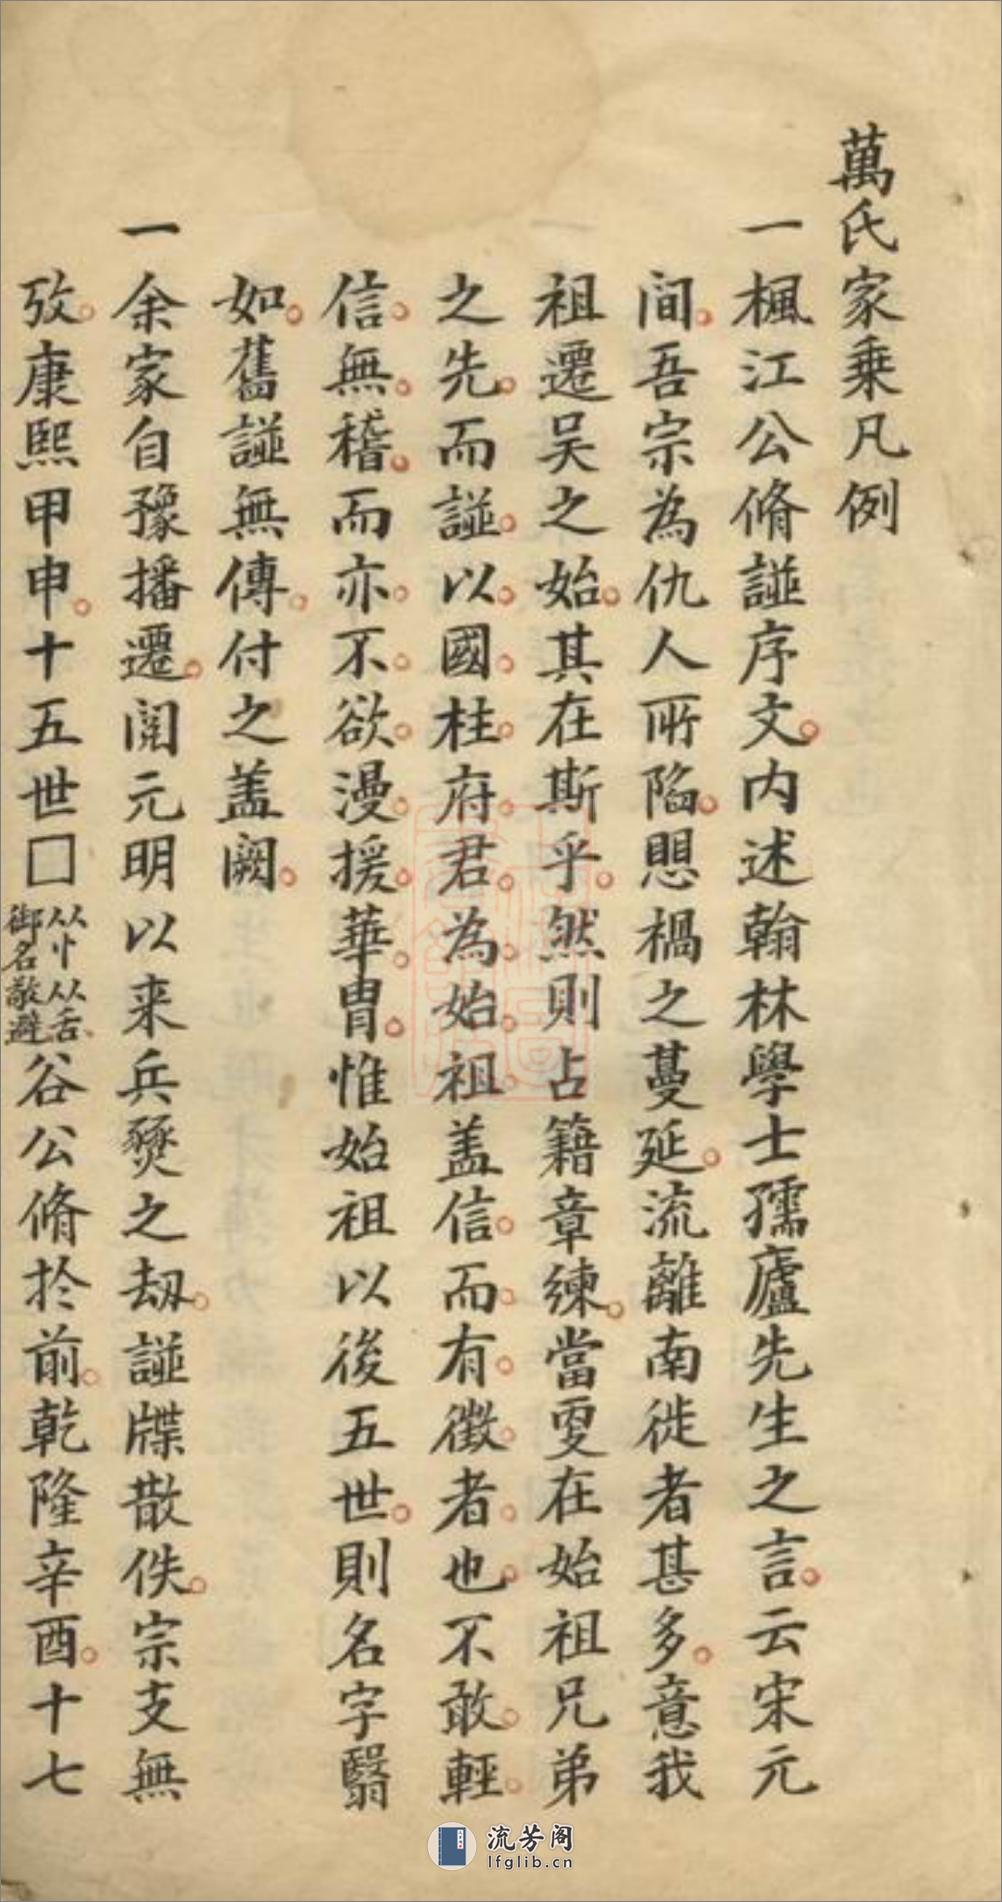 萬氏家乘凡例
一楓江公脩譜序文內述翰林學士孺廬先生之言云宋元
間吾宗為仇人所陷思禍之蔓延流離南徙者甚多意我
祖遷吴之始其在斯乎然則占籍章練當更在始祖兄弟
之先而譜以國柱府君為始祖盖信而有徵者也不敢輕
信無稽而亦不欲漫援華胄惟始祖以後五世則名字翳
如舊譜無傳付之盖闕
一余家自豫播遷閱元明以来兵燹之刼譜牒散佚宗支無
攷康熙甲申十五世□从忄从舌御名敬避谷公脩於前乾隆辛酉十七
流芳阁
lfglib.cn